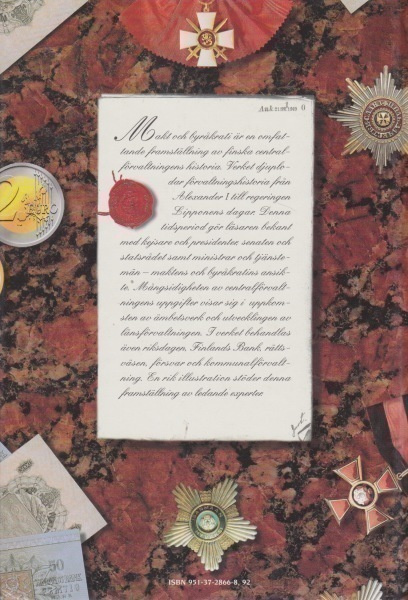 Makt och byråkrati är en omfat-
tande framställning av finska central-
förvaltningens historia. Verket djuplo-
dar förvaltningshistoria från
Alexander I till regeringen
Lipponens dagar. Denna
tidsperiod gör läsaren bekant
med kejsare och presidenter, senaten och
statsrådet samt ministrar och tjänste-
män – maktens och byråkratins ansik-
te. Mångsidigheten av centralförvalt-
ningens uppgifter visar sig i uppkom-
sten av ämbetsverk och utvecklingen av
länsförvaltningen. I verket behandlas
även riksdagen, Finlands Bank, rätts-
väsen, försvar och kommunalförvalt-
ning. En rik illustration stöder denna
framställning av ledande experter.
2
50
ISBN 951-37-2866-8, 92